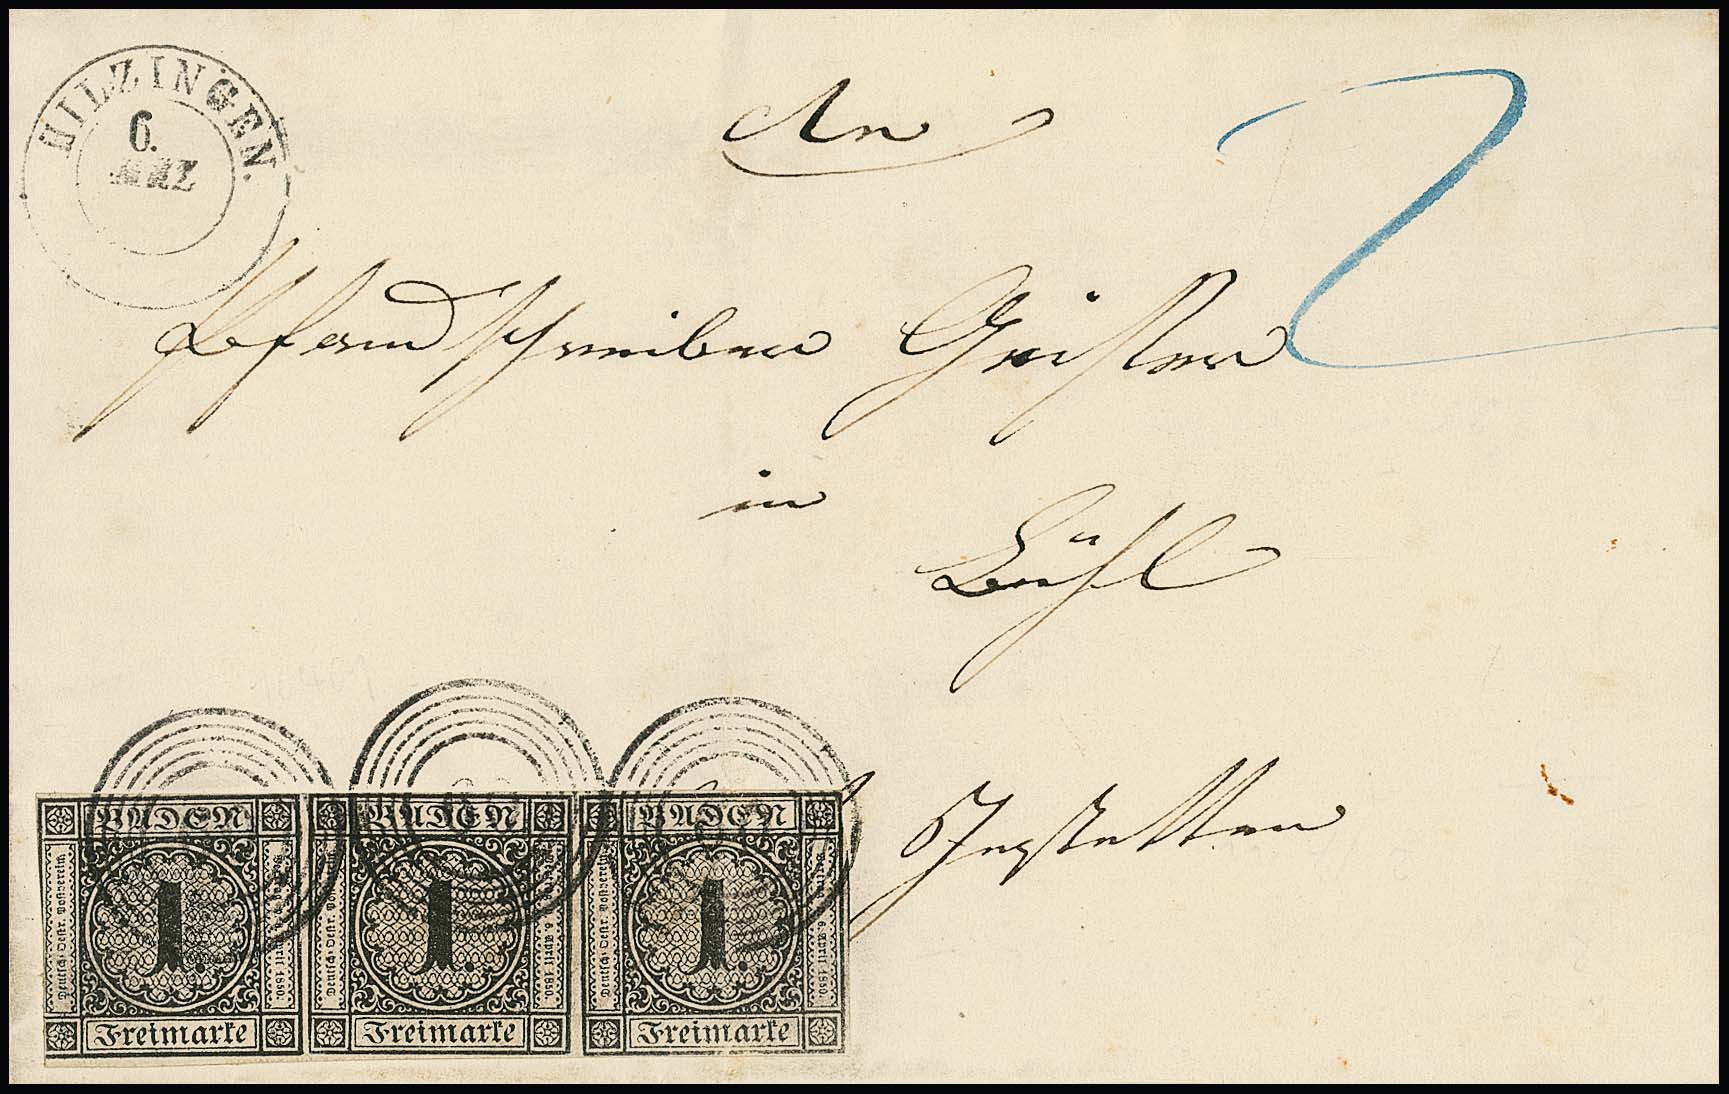 HILZINGEN.
6.
MRZ
An
2
Pfandschreiber Geister
in
Bühl
Jestetten
BADEN BADEN BADEN
Deutsch-Oestr. Postverein Vertrag v. 6 April 1850. Deutsch-Oestr. Postverein Vertrag v. 6 April 1850. Deutsch-Oestr. Postverein Vertrag v. 6 April 1850.
1. 1. 1.
Freimarke Freimarke Freimarke